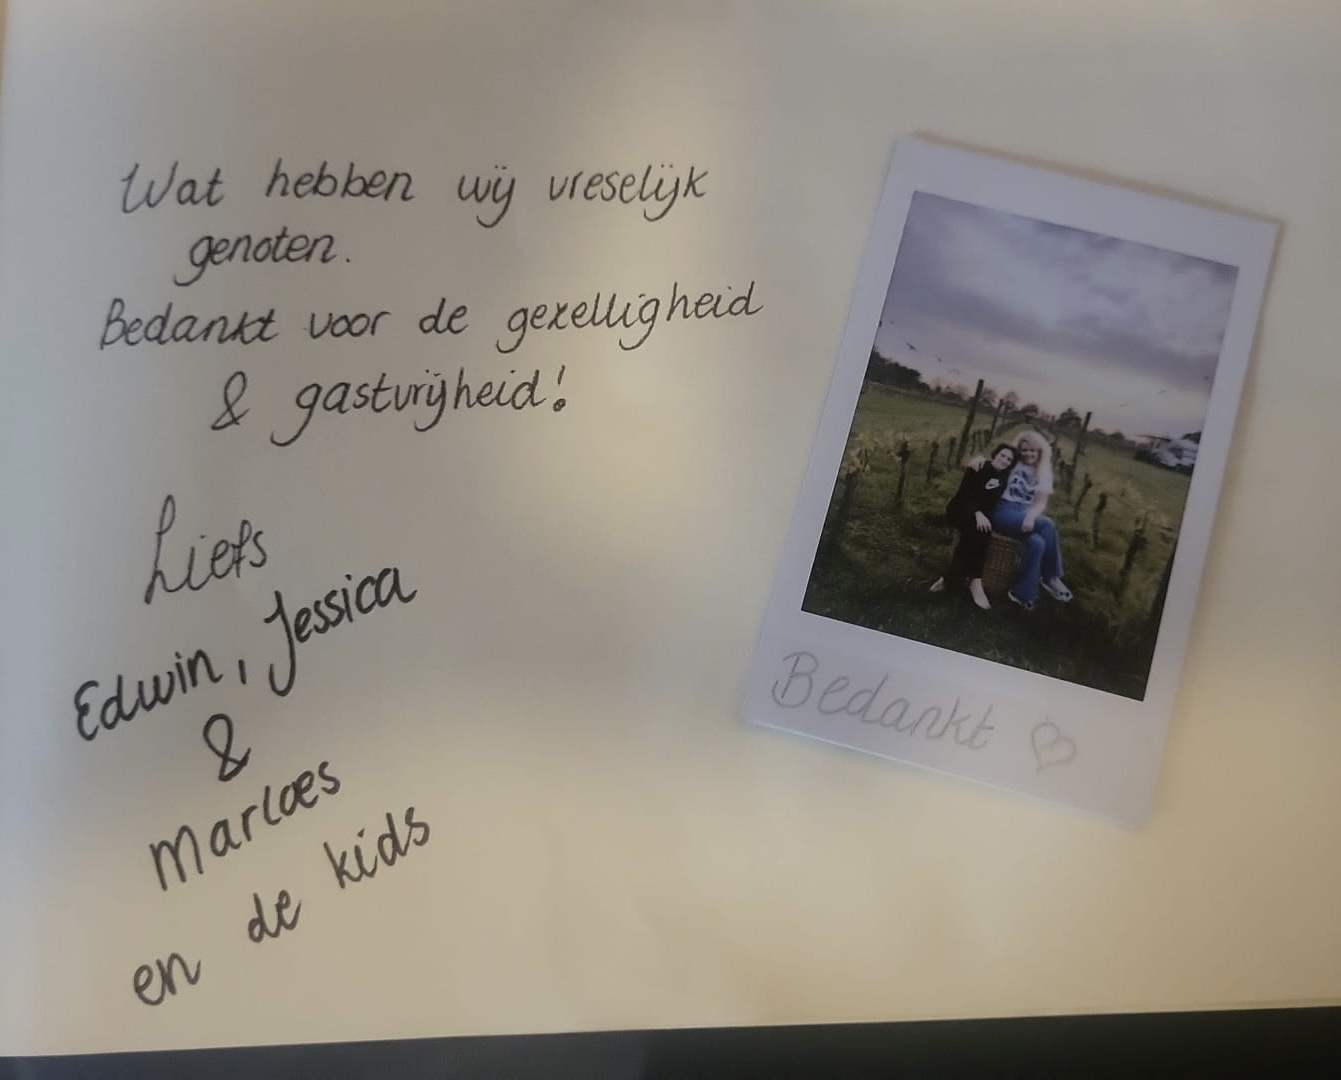 Wat hebben wij vreselijk
genoten.
Bedankt voor de gezelligheid
& gastvrijheid!
Liefs
Edwin, Jessica
&
Marloes
en de kids
Bedankt